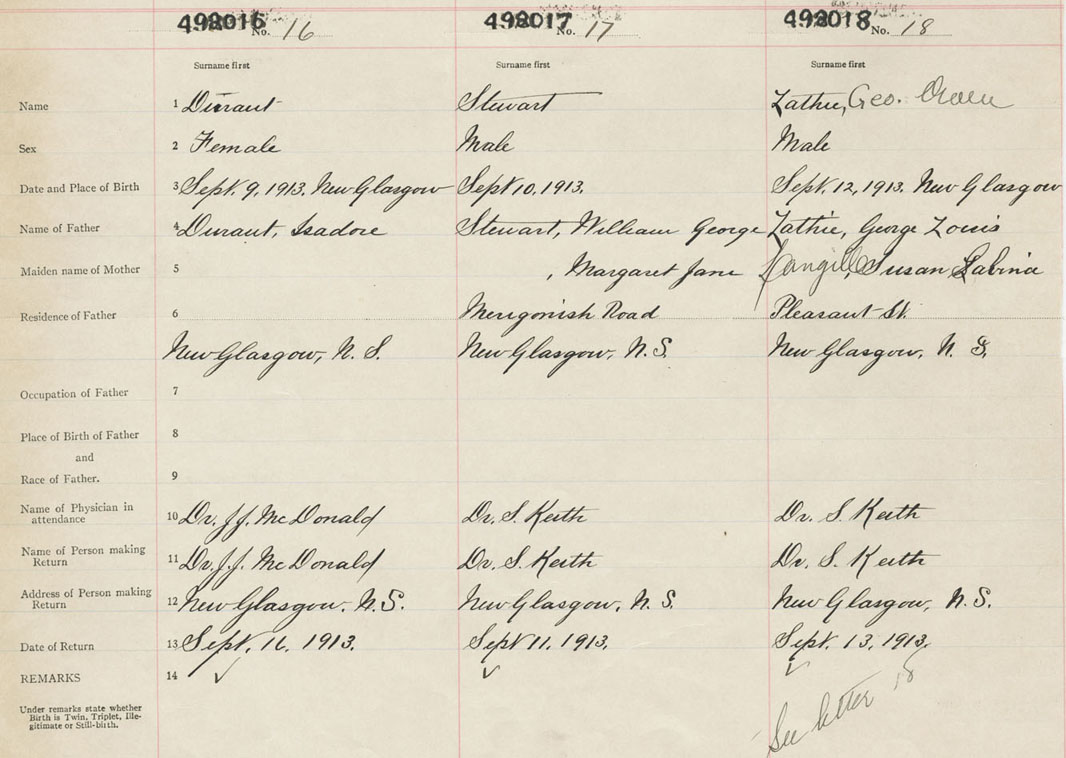 492016 492017 492018
No. 16 No. 17 No. 18
Surname first Surname first Surname first
Name 1 Durant Stewart Lathie, Geo. Owen
Sex 2 Female Male Male
Date and Place of Birth 3 Sept. 9, 1913. New Glasgow Sept 10, 1913. Sept. 12, 1913. New Glasgow
Name of Father 4 Durant, Isadore Stewart, William George Lathie, George Louis
Maiden name of Mother 5 , Margaret Jane Langill, Susan Labina
Residence of Father 6 Merigonish Road Pleasant St.
New Glasgow, N. S. New Glasgow, N. S. New Glasgow, N. S.
Occupation of Father 7
Place of Birth of Father 8
and
Race of Father. 9
Name of Physician in
attendance 10 Dr. J. J. McDonald Dr. S. Keith Dr. S. Keith
Name of Person making
Return 11 Dr. J. J. McDonald Dr. S. Keith Dr. S. Keith
Address of Person making
Return 12 New Glasgow, N. S. New Glasgow, N. S. New Glasgow, N. S.
Date of Return 13 Sept. 16. 1913. Sept 11. 1913. Sept. 13, 1913.
REMARKS 14
Under remarks state whether
Birth is Twin, Triplet, Ille-
gitimate or Still-birth.
See letter